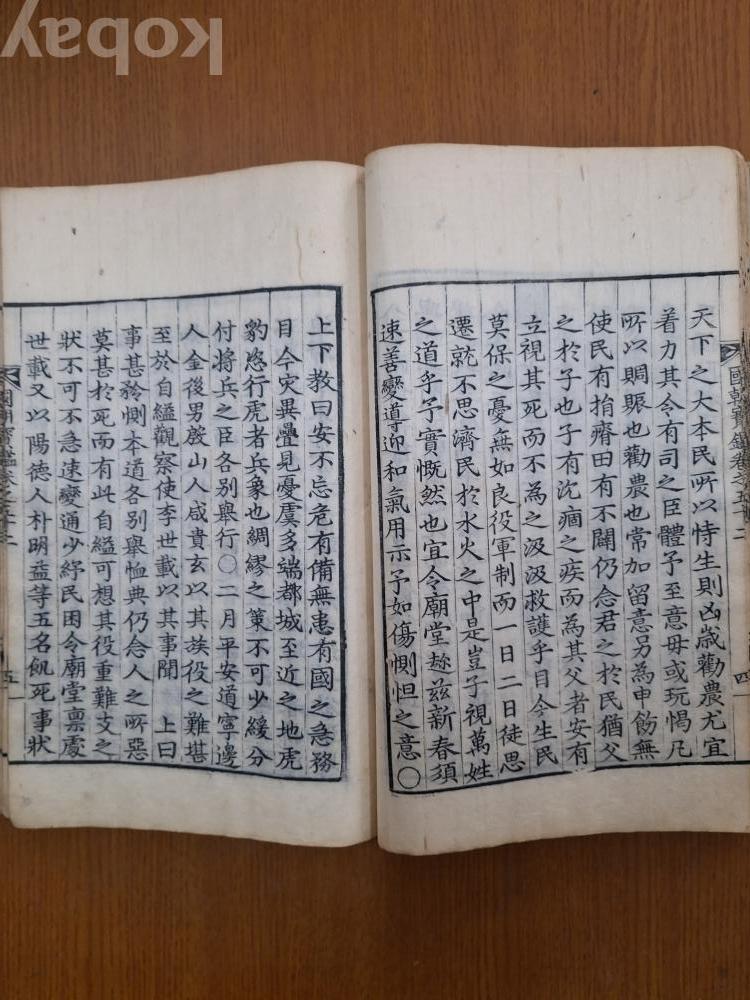 Kobay
天下之大本民所以恃生則凶歲勸農尤宜
着力其令有司之臣體予至意毋或玩愒凡
所以賙賑也勸農也常加留意另爲申飭無
使民有捐瘠田有不闢仍念君之於民猶父
之於子也子有沈痼之疾而為其父者安有
立視其死而不為之汲汲救護乎目今生民
莫保之憂無如良役軍制而一日二日徒思
遷就不思濟民於水火之中是豈子視萬姓
之道乎予實慨然也宜令廟堂趂茲新春須
速善變導迎和氣用示予如傷惻怛之意〇
國朝寶鑑卷之五十二
四
上下教曰安不忘危有備無患有國之急務
目今灾異疊見憂虞多端都城至近之地虎
豹恣行虎者兵象也綢繆之策不可少緩分
付將兵之臣各別舉行〇二月平安道寧邊
人金後男殷山人咸貴玄以其族役之難堪
至於自縊觀察使李世載以其事聞 上曰
事甚矜惻本道各別舉恤典仍念人之所惡
莫甚於死而有此自縊可想其役重難支之
狀不可不急速變通少紓民困令廟堂稟處
世載又以陽德人朴明益等五名飢死事狀
國朝寶鑑卷之五十二
五